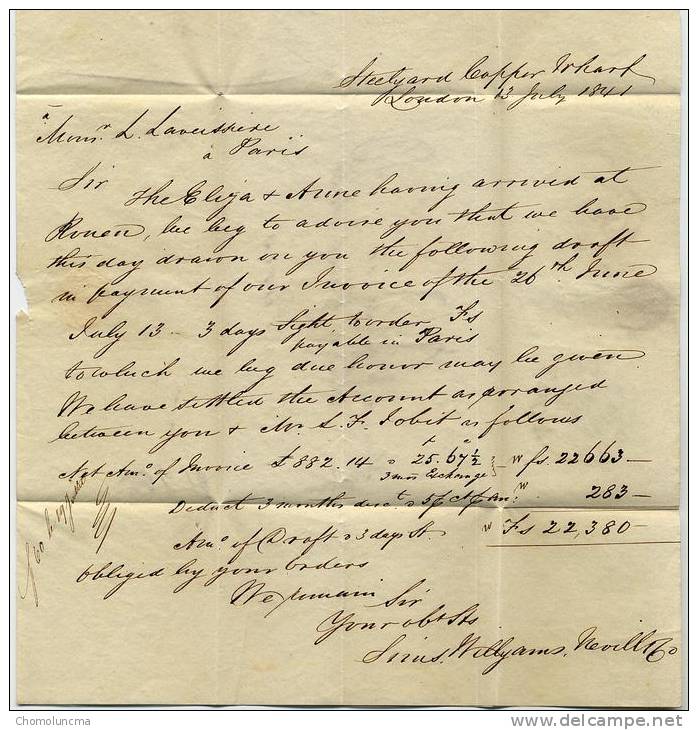 Steelyard Copper Wharf
London 13 July 1841
à
Monsr. L. Laveissiere
à Paris
Sir
The Eliza & Anne having arrived at
Rouen, we beg to advise you that we have
this day drawn on you the following draft
in payment of our Invoice of the 26th June
July 13 - 3 days Sight to order Fs
payable in Paris
to which we beg due honor may be given
We have settled the Account as arranged
between you & Mr. L. F. Jobit as follows
Net Amo. of Invoice £882.14 25.67½ fs. 22663-
3 mos Exchange
Deduct 3 months disct. 5 p Ct p An: 283-
Amo. of Draft 3 days St. Fs 22,380-
Obliged by your orders
We remain Sir
Your obt Sts
Sims, Willyams, Nevill & Co
Chomoluncma
delcampe.net